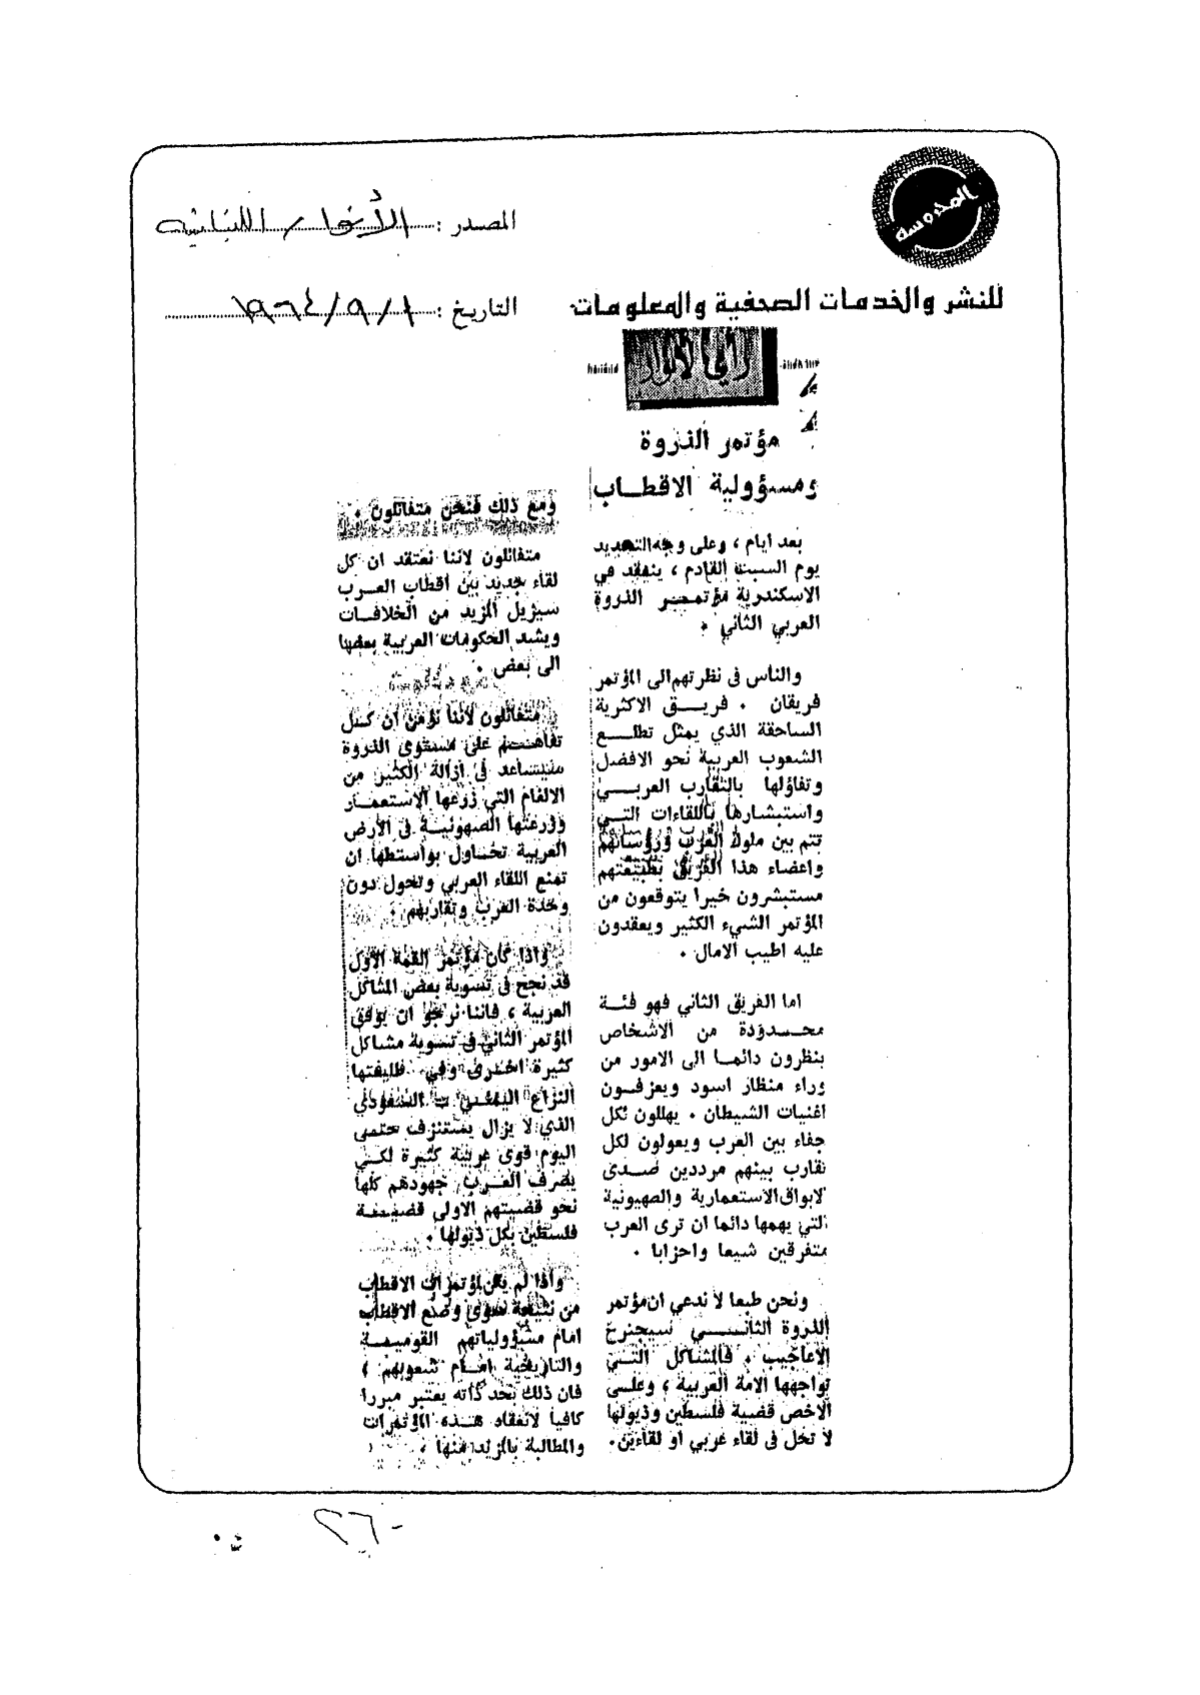 المحروسة
للنشر والخدمات الصحفية والمعلومات
المصدر : الأنوار اللبنانية
التاريخ : ١٩٦٤/٩/١
رأي الأنوار
مؤتمر الذروة
ومسؤولية الاقطـاب
بعد ايام ، وعلى وجه التحديد
يوم السبت القادم ، ينعقد في
الاسكندرية مؤتمـر الذروة
العربي الثاني .
والناس فى نظرتهم الى المؤتمر
فريقان . فريـق الاكثرية
الساحقة الذي يمثل تطلـع
الشعوب العربية نحو الافضل
وتفاؤلها بالتقارب العربـي
واستبشارها باللقاءات التـي
تتم بين ملوك العرب ورؤسائهم
واعضاء هذا الفريق بطبيعتهم
مستبشرون خيرا يتوقعون من
المؤتمر الشيء الكثير ويعقدون
عليه اطيب الامال .
اما الفريق الثاني فهو فئـة
محـدودة من الاشخاص
ينظرون دائمـا الى الامور من
وراء منظار اسود ويعزفـون
اغنيات الشيطان . يهللون لكل
جفاء بين العرب ويعولون لكل
تقارب بينهم مرددين صـدى
لابواق الاستعمارية والصهيونية
التي يهمها دائما ان ترى العرب
متفرقين شيعا واحزابا .
ونحن طبعا لا ندعي ان مؤتمر
الذروة الثانـي سيجترح
الاعاجيب ، فالمشاكل التـي
تواجهها الامة العربية ، وعلـى
الاخص قضية فلسطين وذيولها
لا تحل فى لقاء عربي او لقاءين.
ومع ذلك فنحن متفائلون .
متفائلون لاننا نعتقد ان كل
لقاء جديد بين اقطاب العـرب
سيزيل المزيد من الخلافـات
ويشد الحكومات العربية بعضها
الى بعض .
متفائلون لاننا نؤمن ان كـل
تفاهـم على مستوى الذروة
سيساعد فى ازالة الكثير من
الالغام التي زرعها الاستعمـار
وزرعتها الصهيونيـة فى الأرض
العربية تحـاول بواسطتها ان
تمنع اللقاء العربي وتحول دون
وحدة العرب وتقاربهم .
واذا كان مؤتمر القمة الأول
قد نجح فى تسوية بعض المشاكل
العربية ، فاننا نرجو ان يوفق
المؤتمر الثاني فى تسوية مشاكل
كثيرة اخـرى وفي طليعتها
النزاع اليمنـي ـ السعودي
الذي لا يزال يستنزف حتـى
اليوم قوى عربية كثيرة لكـي
يصرف العـرب جهودهم كلها
نحو قضيتهم الاولى قضيـة
فلسطين بكل ذيولها .
واذا لم يكن لمؤتمرات الاقطاب
من نتيجة سوى وضع الاقطاب
امام مسؤولياتهم القوميـة
والتاريخية امـام شعوبهم ،
فان ذلك بحد ذاته يعتبر مبررا
كافيا لانعقاد هـذه المؤتمرات
والمطالبة بالمزيد منها .